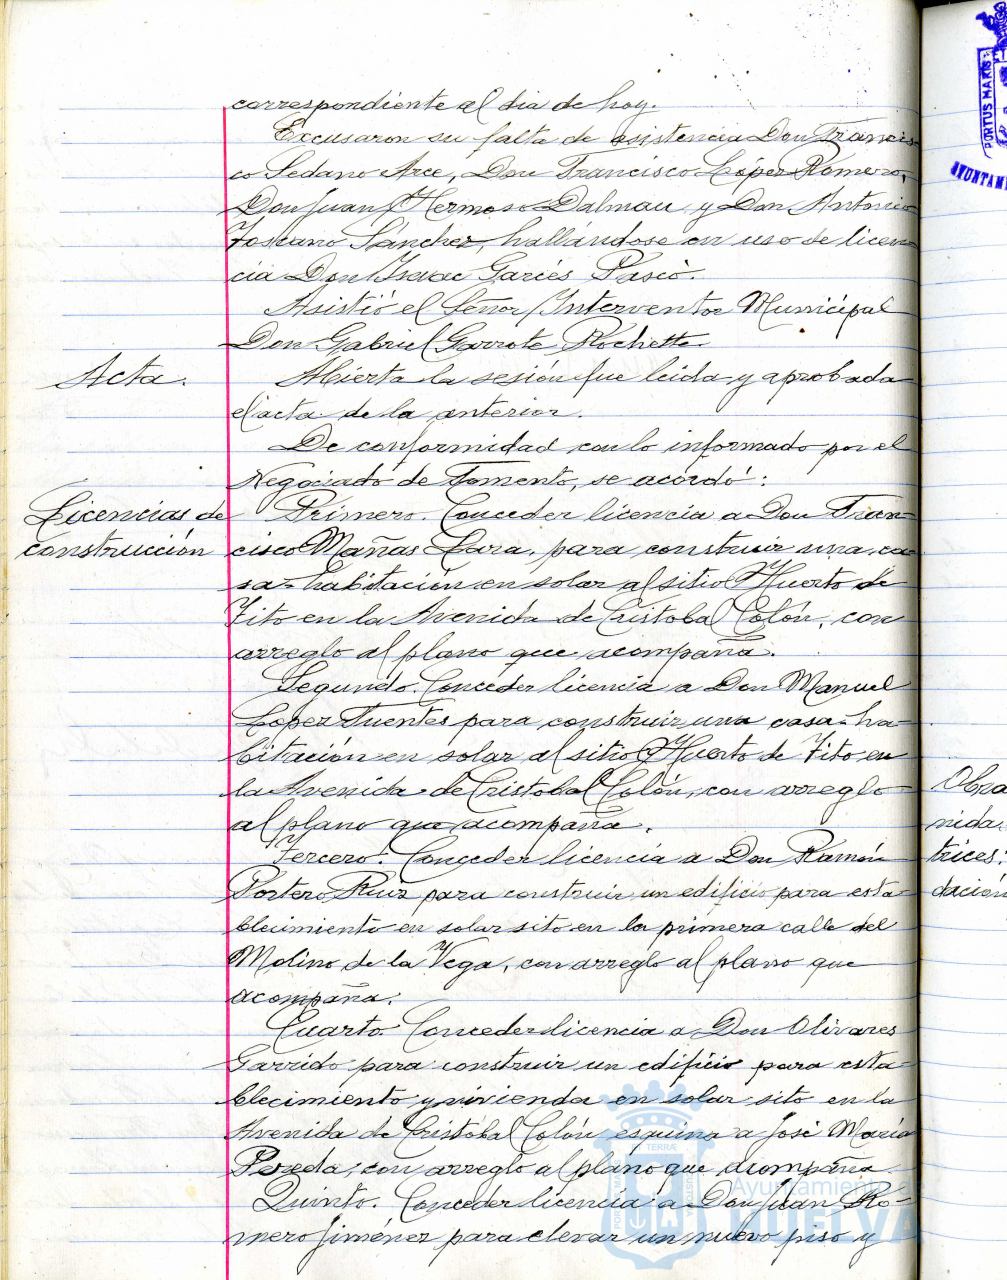 correspondiente al dia de hoy.
Excusaron su falta de asistencia Don Francis-
co Sedano Arce, Don Francisco López Romero,
Don Juan Hermoso Dalmau y Don Antonio
Toscano Sánchez, hallándose en uso de licen-
cia Don Isaac Garcés Pasció.
Asistió el Señor Interventor Municipal
Don Gabriel Garrote Rochette.
Acta.
Abierta la sesión fue leida y aprobada
el acta de la anterior.
De conformidad con lo informado por el
Negociado de Fomento, se acordó:
Licencias de
construcción
Primero. Conceder licencia a Don Fran-
cisco Mañas Lara, para construir una ca-
sa-habitación en solar al sitio Huerto de
Tito en la Avenida de Cristobal Colón, con
arreglo al plano que acompaña.
Segundo. Conceder licencia a Don Manuel
López Fuentes para construir una casa-ha-
bitación en solar al sitio Huerto de Tito en
la Avenida de Cristobal Colón, con arreglo
al plano que acompaña.
Tercero. Conceder licencia a Don Ramón
Portero Ruiz para construir un edificio para esta-
blecimiento en solar sito en la primera calle del
Molino de la Vega, con arreglo al plano que
acompaña.
Cuarto. Conceder licencia a Don Olivares
Garrido para construir un edificio para esta-
blecimiento y vivienda en solar sito en la
Avenida de Cristóbal Colón esquina a José María
Pereda, con arreglo al plano que acompaña.
Quinto. Conceder licencia a Don Juan Ro-
mero Jiménez para elevar un nuevo piso y
PORTUS MARIS
AYUNTAM
Obra
nida.
trices:
dación
Ayuntamiento de
HUELVA